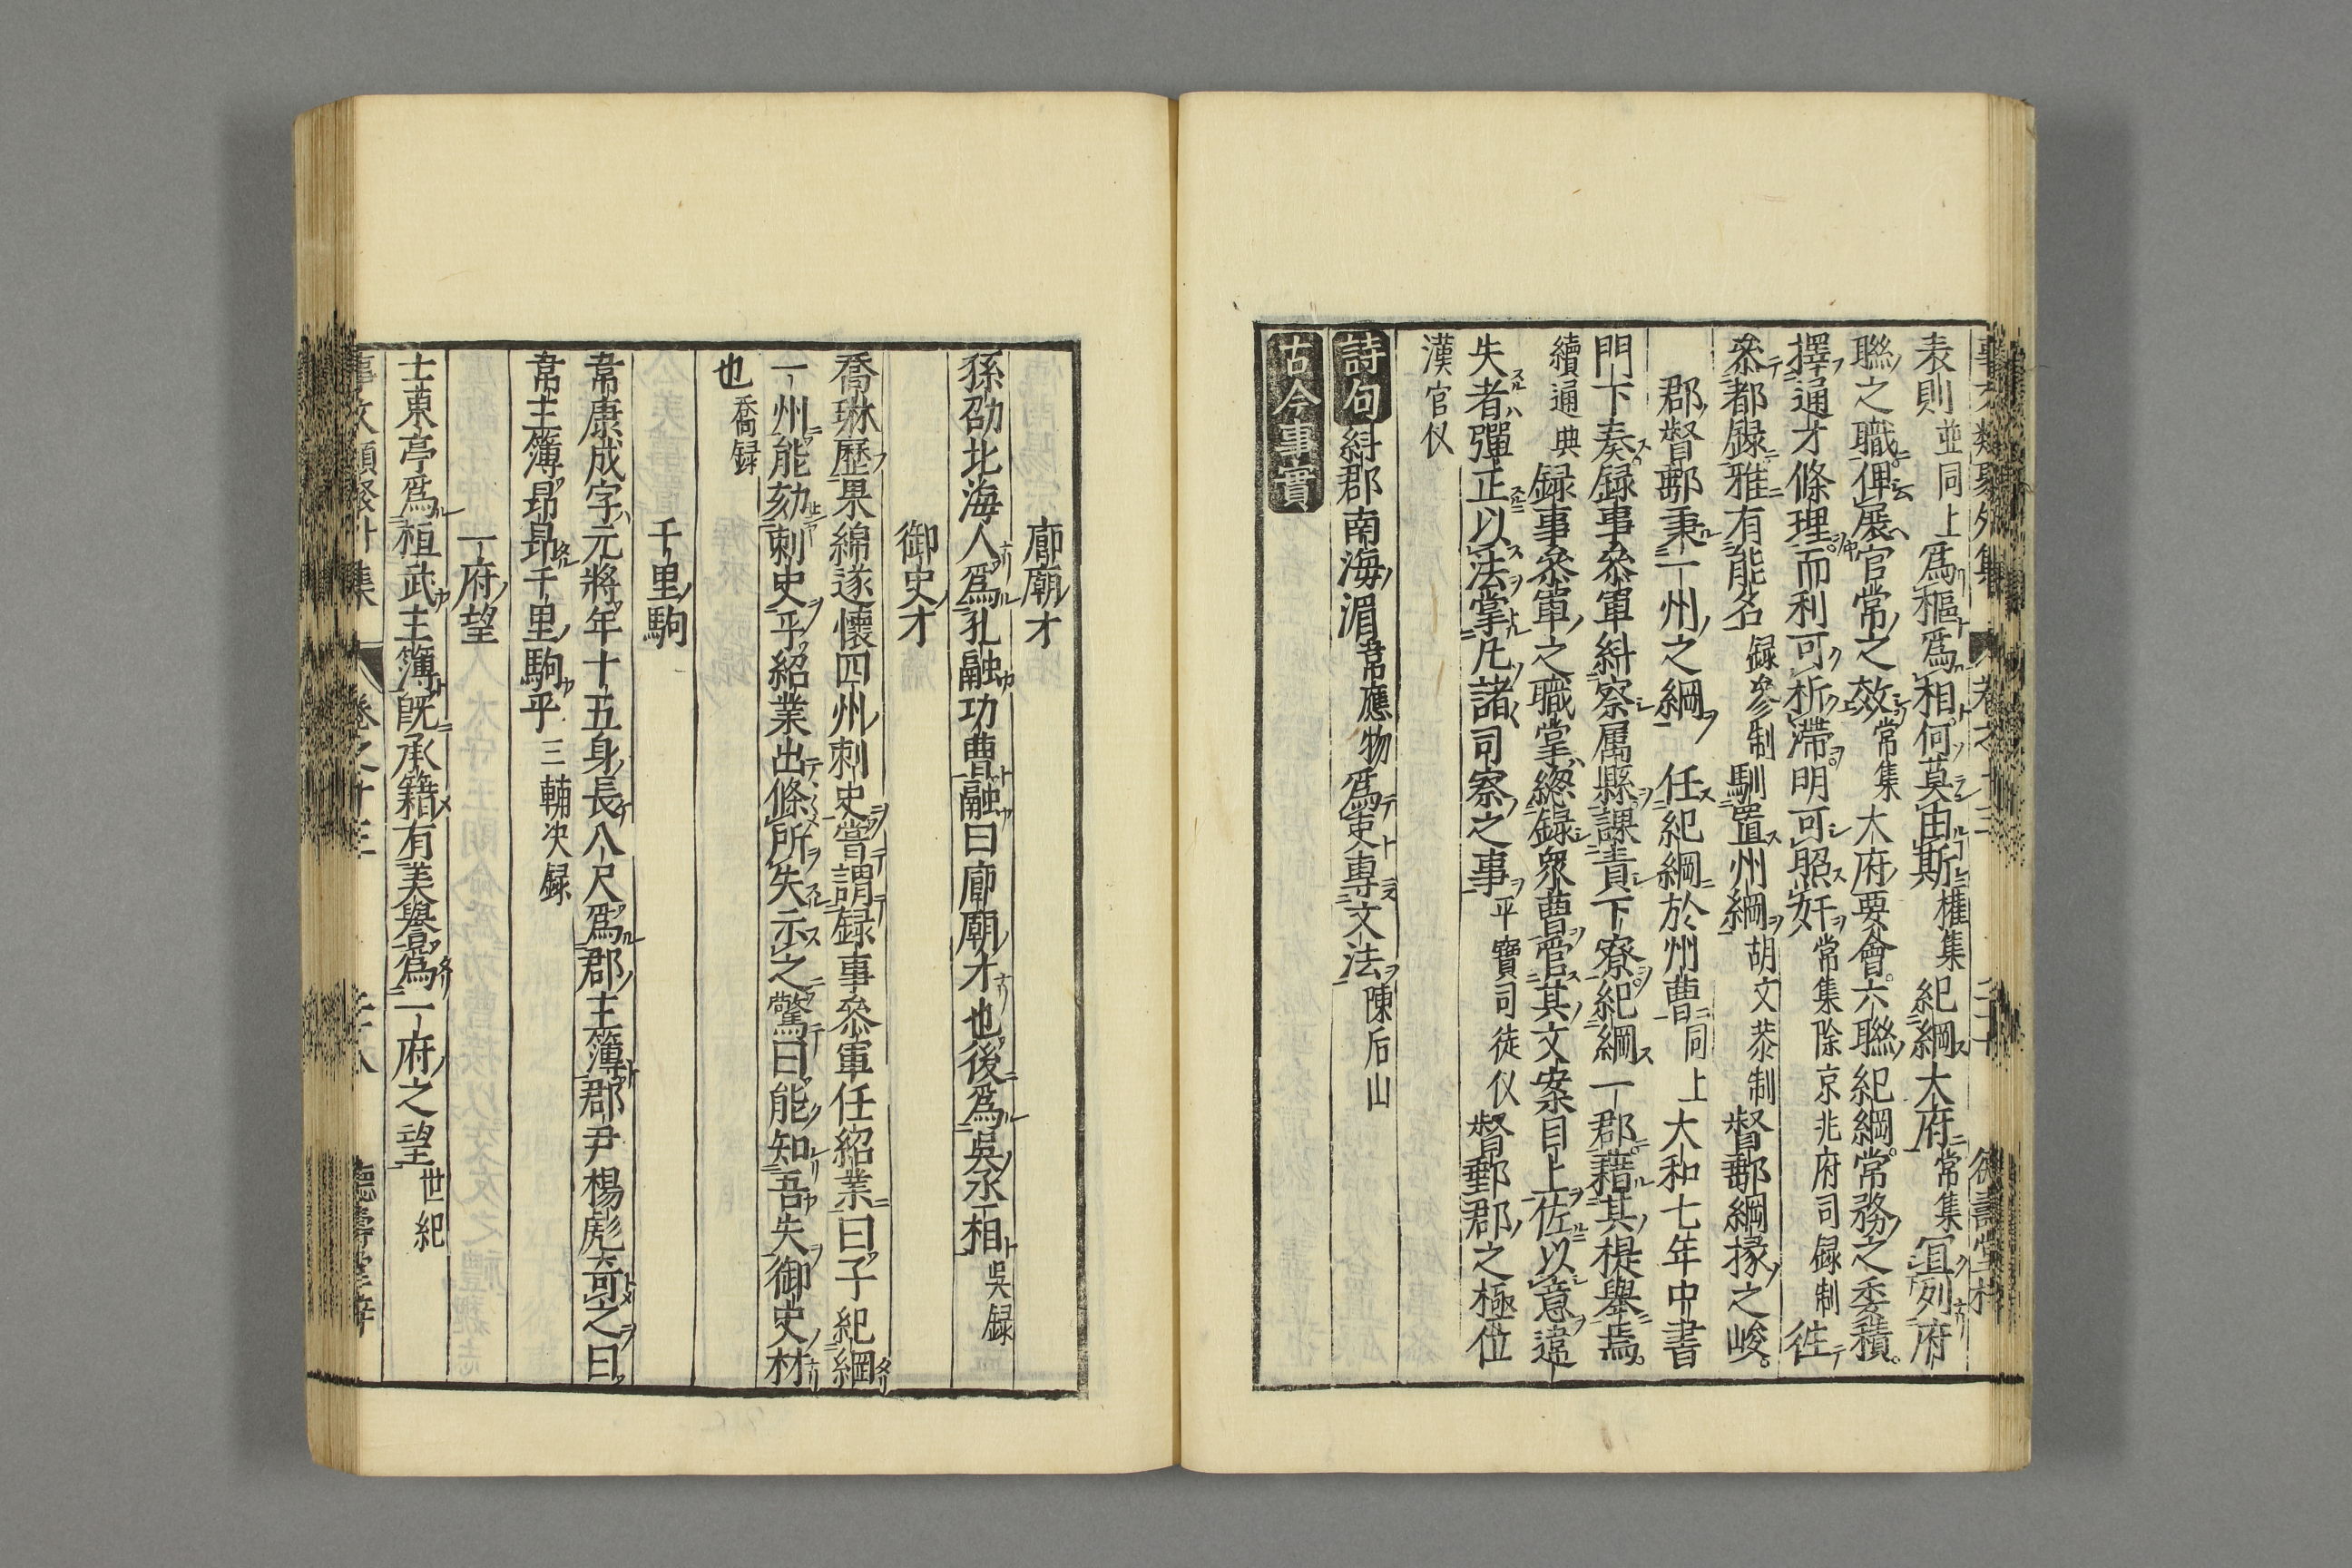 表則並同上爲樞爲相何莫由斯權集紀綱大府常集冝列府
聮之職俾展官常之效常集大府要會六聮紀綱常務之委積
擇通才條理而利可析滯明可照奸常集除京兆府司録制徃
叅都録雅有能名録參制馴置州綱胡文恭制督郵綱掾之峻
郡督郵秉一州之綱任紀綱於州曹同上大和七年中書
門下奏録事叅軍糾察属縣課責下寮紀綱一郡藉其提舉焉
續通典録事叅軍之職掌緫録衆曹管其文案自上佐以意違
失者彈正以法掌凡諸司察之事平寶司徒仪督郵郡之極位
漢官仪
詩句糾郡南海湄韋應物爲吏專文法陳后山
古今事實
廊廟才
孫劭北海人爲孔融功曹融曰廊廟才也後爲吳丞相吳録
御史才
喬琳歷果綿遂懷四州刺史嘗謂録事叅軍任紹業曰子紀綱
一州能劾刺史乎紹業出條所失示之驚曰能知吾失御史材
也喬録
千里駒
韋康成字元將年十五身長八尺爲郡主簿郡尹楊彪奇之曰
韋主簿昂昂千里駒乎三輔决録
一府望
士東亭爲桓武主簿旣承籍有美譽爲一府之望世紀